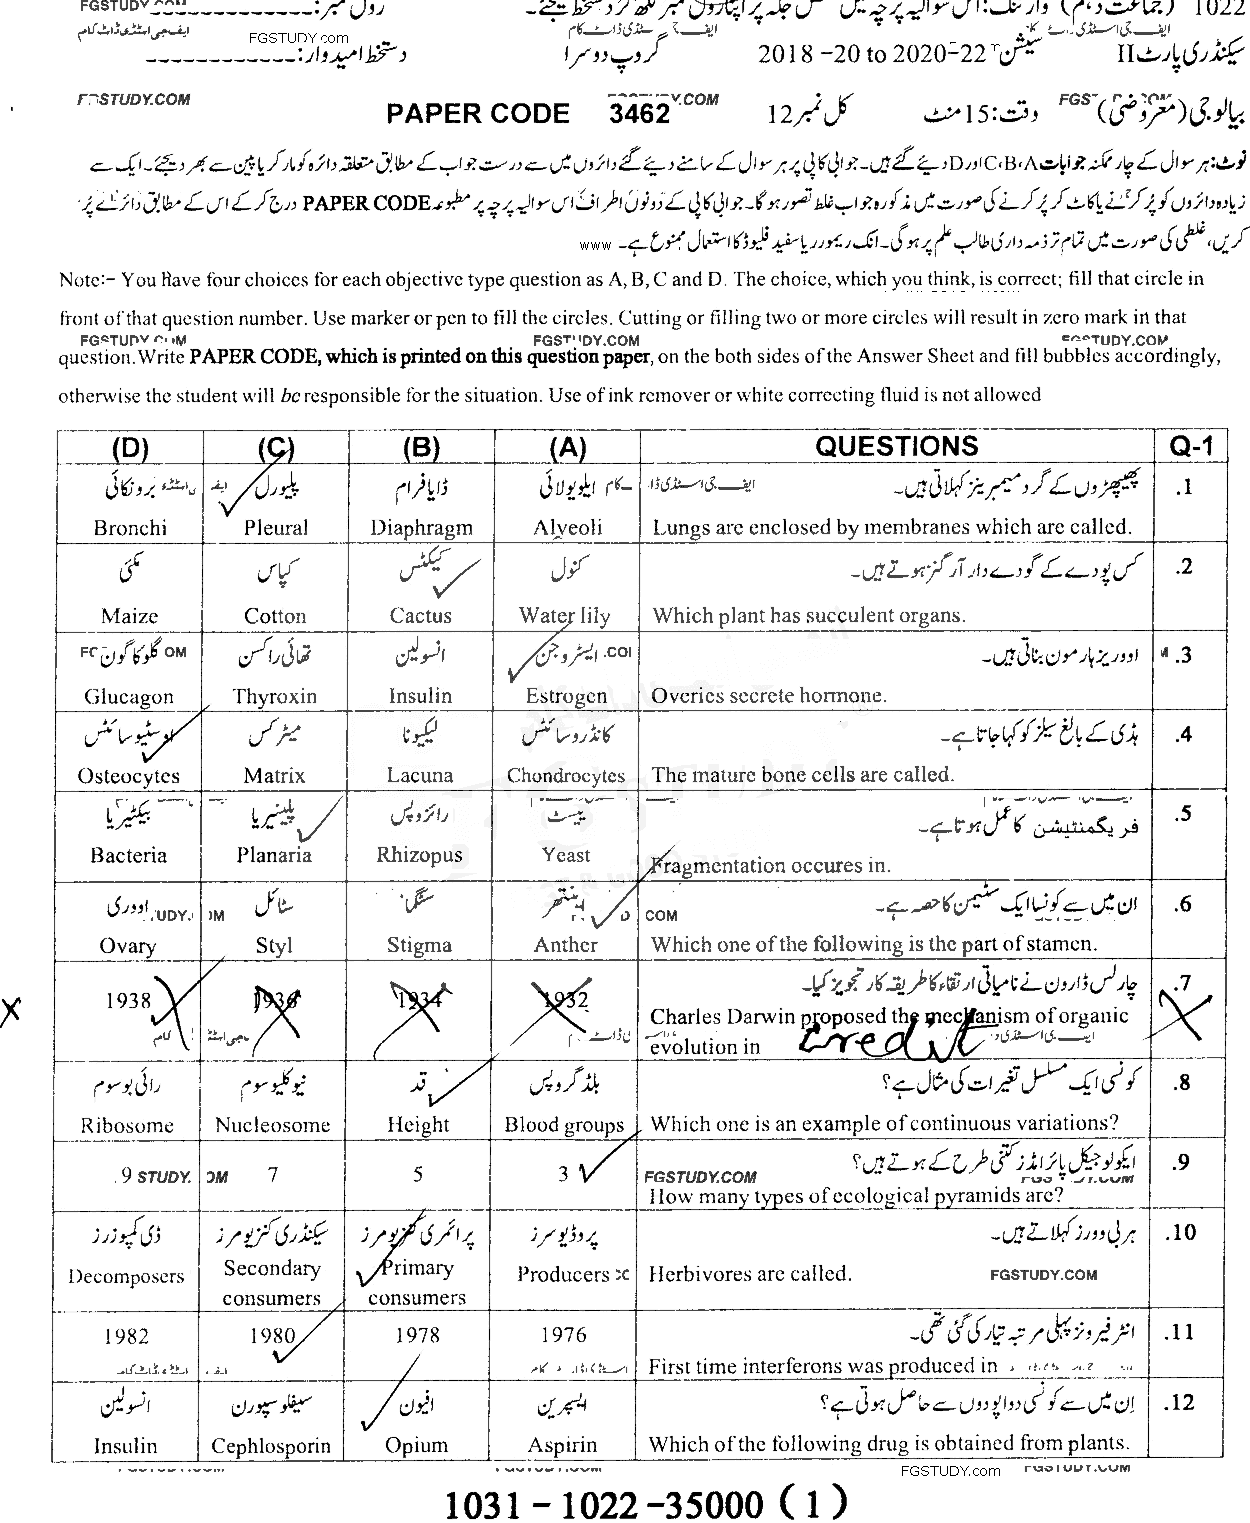 FGSTUDY.COM
رول نمبر: 1022 (جماعت دہم) وارننگ: اس سوالیہ پرچہ میں
FGSTUDY.com
سیکنڈری پارٹ II سیشن 2018 -20 to 2020-22 گروپ دوسرا دستخط امیدوار:
بیالوجی (معروضی) وقت: 15 منٹ کل نمبر 12 PAPER CODE 3462
نوٹ: ہر سوال کے چار ممکنہ جوابات A، B، C اور D دیئے گئے ہیں۔ جوابی کاپی پر ہر سوال کے سامنے دیئے گئے دائروں میں سے درست جواب کے مطابق متعلقہ دائرہ کو مارکر یا پین سے بھر دیجئے۔ ایک سے
زیادہ دائروں کو پُر کرنے یا کاٹ کر پُر کرنے کی صورت میں مذکورہ جواب غلط تصور ہو گا۔ جوابی کاپی کے دونوں اطراف اس سوالیہ پرچہ پر مطبوعہ PAPER CODE درج کر کے اس کے مطابق دائرے پُر
کریں، غلطی کی صورت میں تمام تر ذمہ داری طالب علم پر ہو گی۔ انک ریموور یا سفید فلیوڈ کا استعمال ممنوع ہے۔ www
Note:- You have four choices for each objective type question as A, B, C and D. The choice, which you think, is correct; fill that circle in
front of that question number. Use marker or pen to fill the circles. Cutting or filling two or more circles will result in zero mark in that
question. Write PAPER CODE, which is printed on this question paper, on the both sides of the Answer Sheet and fill bubbles accordingly,
otherwise the student will be responsible for the situation. Use of ink remover or white correcting fluid is not allowed
(D) (C) (B) (A) QUESTIONS Q-1
برونکائی پلیورل ڈایافرام ایلویولائی پھیپھڑوں کے گرد میمبرینز کہلاتی ہیں۔ .1
Bronchi Pleural Diaphragm Alveoli Lungs are enclosed by membranes which are called.
مکئی کپاس کیکٹس کنول کس پودے کے گودے دار آرگنز ہوتے ہیں۔ .2
Maize Cotton Cactus Water lily Which plant has succulent organs.
گلوکاگون تھائی راکسن انسولین ایسٹروجن اووریز ہارمون بناتی ہیں۔ .3
Glucagon Thyroxin Insulin Estrogen Overies secrete hormone.
اوسٹیوسائٹس میٹرکس لیکیونا کانڈروسائٹس ہڈی کے بالغ سیلز کو کہا جاتا ہے۔ .4
Osteocytes Matrix Lacuna Chondrocytes The mature bone cells are called.
بیکٹیریا پلینیریا رائزوپس ییسٹ فریگمنٹیشن کا عمل ہوتا ہے۔ .5
Bacteria Planaria Rhizopus Yeast Fragmentation occures in.
اووری سٹائل سٹگما اینتھر ان میں سے کونسا ایک سٹیمن کا حصہ ہے۔ .6
Ovary Styl Stigma Anther Which one of the following is the part of stamen.
1938 1936 1934 1932 چارلس ڈارون نے نامیاتی ارتقاء کا طریقہ کار تجویز کیا۔ .7
Charles Darwin proposed the mechanism of organic
evolution in credit
رائبوسوم نیوکلیوسوم قد بلڈ گروپس کونسی ایک مسلسل تغیرات کی مثال ہے؟ .8
Ribosome Nucleosome Height Blood groups Which one is an example of continuous variations?
9 7 5 3 ایکولوجیکل پائرامڈز کتنی طرح کے ہوتے ہیں؟ .9
FGSTUDY.COM
How many types of ecological pyramids are?
ڈی کمپوزرز سیکنڈری کنزیومرز پرائمری کنزیومرز پروڈیوسرز ہربی وورز کہلاتے ہیں۔ .10
Decomposers Secondary consumers Primary consumers Producers Herbivores are called. FGSTUDY.COM
1982 1980 1978 1976 انٹرفیرونز پہلی مرتبہ تیار کی گئی تھی۔ .11
First time interferons was produced in
انسولین سیفلوسپورن افیون ایسپرین اِن میں سے کونسی دوا پودوں سے حاصل ہوتی ہے؟ .12
Insulin Cephlosporin Opium Aspirin Which of the following drug is obtained from plants.
FGSTUDY.com
1031 - 1022 -35000 ( 1 )